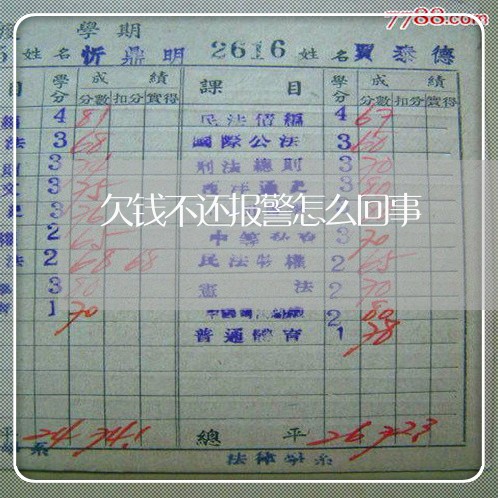 7788.com
學期
姓名 忻鼎明 2616 姓名 賈泰德
目 學分 成績 課目 學分 成績
分數 扣分 實得 分數 扣分 實得
4 81 民法債編 4 67
法 3 68 國際公法 3 60
3 刑法總則 3 70
3 75 3 80
欠钱不还报警怎么回事
2 65 3 70
法 2 68 68 民法物權 2 65
3 80 憲法 2 70
1 70 2 80
普通體育 1 78
平 24 74.1 總平 26 72.3
系 法律學系